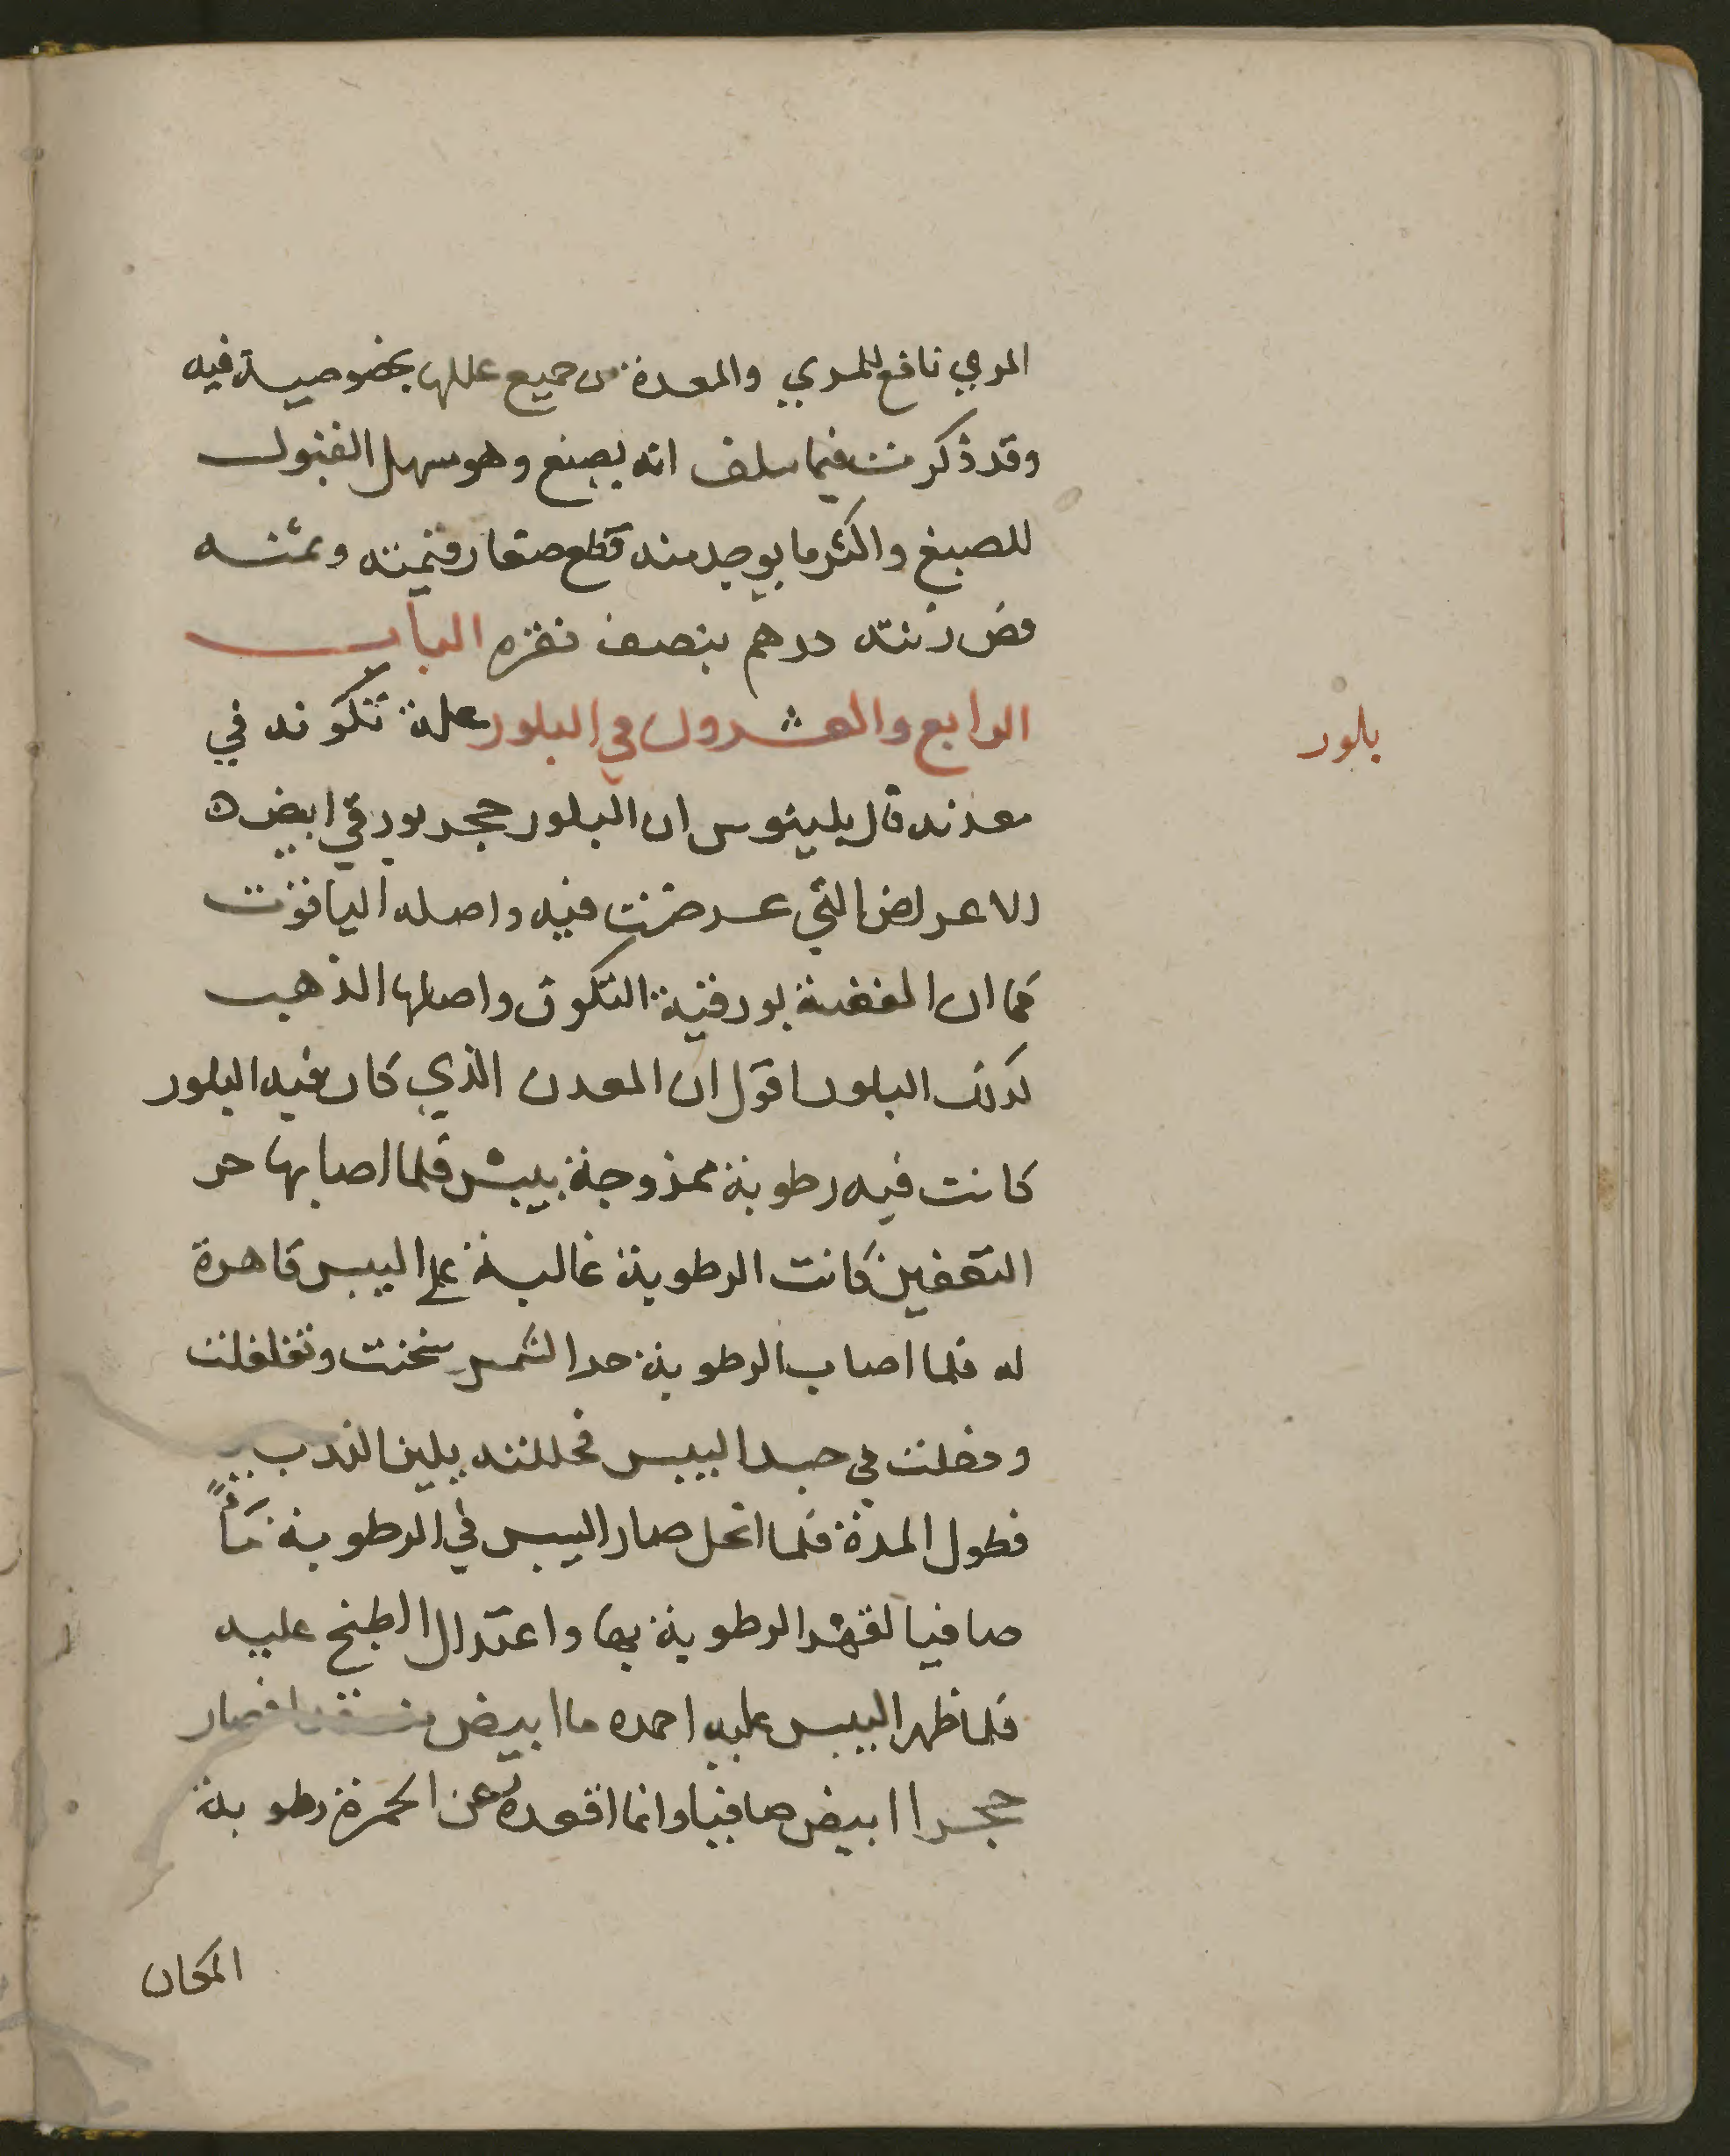 المري نافع للمري والمعدة من جميع عللها بخصوصية فيه
وقد ذكرت فيما سلف انه يصبغ وهو سهل القبول
للصبغ واكثر ما يوجد منه قطع صغار وقيمته وثمنه
فض زنته درهم بنصف نقره الباب
الرابع والعشرون في البلور علة تكونه في
بلور
معدنه قال بلينوس ان البلور حجر بورقي ابيض
الاعراض التي عرضت فيه واصله الياقوت
كما ان الفضة بورقية التكون واصلها الذهب
كذلك البلور اقول ان المعدن الذي كان فيه البلور
كانت فيه رطوبة ممزوجة بيبس فلما اصابها حر
التعفين كانت الرطوبة غالبة على اليبس قاهرة
له فلما اصاب الرطوبة حر الشمس سخنت وتغلغلت
ودخلت في جسد اليبس فحللته بلين
فطول المدة فلما انحل صار اليبس في الرطوبة مآء
صافيا لقهر الرطوبة بها واعتدال الطبخ عليه
فلما ظهر اليبس عليه اجمده ما ابيض فصار
حجرا ابيض صافيا وانما اقعده عن الحمرة رطوبة
المكان